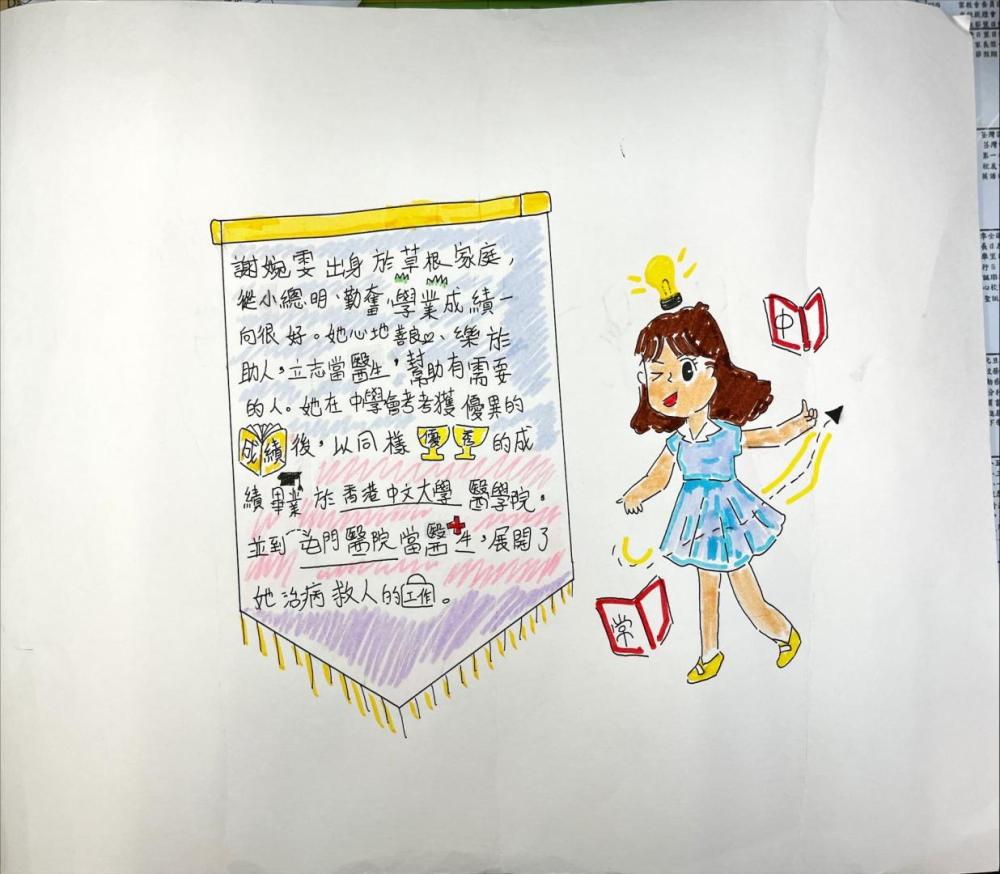 謝婉雯出身於草根家庭，
從小總明、勤奮，學業成績一
向很好。她心地善良、樂於
助人，立志當醫生，幫助有需要
的人。她在中學會考考獲優異的
成績後，以同樣優秀的成
績畢業於香港中文大學醫學院，
並到屯門醫院當醫生，展開了
她治病救人的工作。
中
常